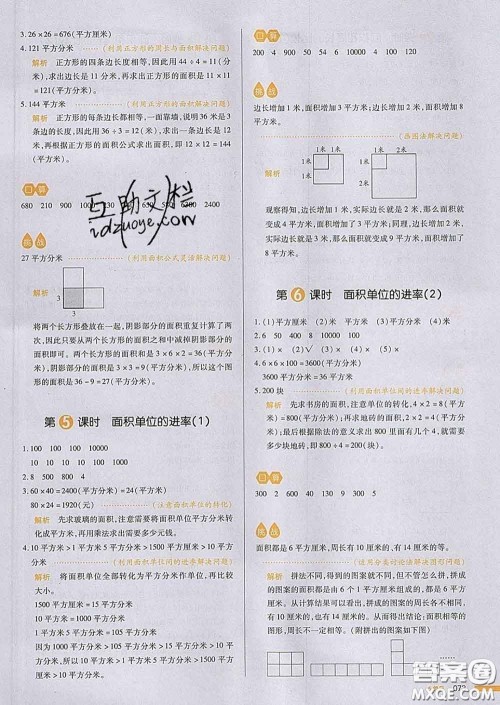 3. 26×26=676(平方分米)
4. 121平方分米 (利用正方形的周长与面积解决问题)
解析 正方形的四条边长度相等,因此用 44÷4=11(分
米),求出边长是 11 分米,再求出正方形面积 11×11
=121(平方分米)。
5. 144平方米 (利用正方形的面积解决问题)
解析 正方形的每条边长都相等,一面靠墙,说明 36 米是 3
条边的长度,因此用 36÷3=12(米),求出一条边的长度,
再根据正方形的面积公式求出面积,即 12×12=144
(平方米)。
口算
680 210 900
挑战
27 平方分米 (利用面积公式灵活解决问题)
解析
3
3
将两个长方形叠放在一起,阴影部分的面积重复计算了两
次,因此只要从两个长方形面积之和中减掉阴影部分的
面积即可。两个长方形的面积是 3×6×2=36(平方分
米),阴影部分的面积是 3×3=9(平方分米),所以这个图
形的面积是 36-9=27(平方分米)。
第5课时 面积单位的进率(1)
1. 100 100 10000 10000
2. 10 8 4 40 5 500
3. 60×40=2400(平方分米)=24(平方米)
80×24=1920(元) (注意面积单位的转化)
解析 先求玻璃的面积,注意需要将面积单位平方分米转
化成平方米,再用乘法求出需要多少元钱。
4. 10 平方米>1 平方米 5 平方分米>1500 平方厘米>10 平方
分米 (利用面积单位间的进率解决问题)
解析 将面积单位全部转化为平方分米作单位,再进行比
较。
1500 平方厘米=15 平方分米
10 平方米=1000 平方分米
1 平方米 5 平方分米=105 平方分米
1000>105>15>10
10 平方米>1 平方米 5 平方分米>1500 平方厘米>10 平方
分米
口算
200 4 900 50 100 540 450 5
挑战
边长增加 1 米,面积增加 3 平方米;边长增加 2 米,面积增加 8
平方米。 (画图法解决问题)
解析
1米 1米
1米
2米
1米
1米
观察得知,边长增加 1 米,实际边长就是 2 米,那么面积就
变成 4 平方米,面积增加了 3 平方米;同理,边长增加 2 米,
实际边长就是 3 米,那么面积就变成 9 平方米,面积增加了
8 平方米。
第6课时 面积单位的进率(2)
1. (1)平方厘米 (2)米 (3)平方千米
3. (1)× (2)√ (3)× (4)×
4. 6×6×100=3600(平方分米)
3600平方分米=36平方米
5. 200块 (利用面积单位间的进率解决问题)
解析 先求书房的面积,注意单位换算,4×2=8(平方
米)=800(平方分米);再求地砖的面积,2×2=4(平方分
米);最后根据除法的意义求出 800 里面有多少个 4,就需要
多少块地砖,即 800÷4=200(块)。
口算
300 2 600 9 130 9 824 8
挑战
面积都是 6 平方厘米,周长有 10 厘米的,有 14 厘米的。
解析 拼法不同,得到的图案就不同,但不管怎么拼,拼成
的图案的面积都是由 6 个小正方形的面积组成的,所以面
积不变。从计算结果可以看出,拼成的图案的周长不一定
相等。从而得出结论:拼成的图案的面积都是 6 平方厘
米,周长不一定相等。(附拼出的图案如下图)
……
互助文档
idzuoye.com
答案圈
MXQE.COM